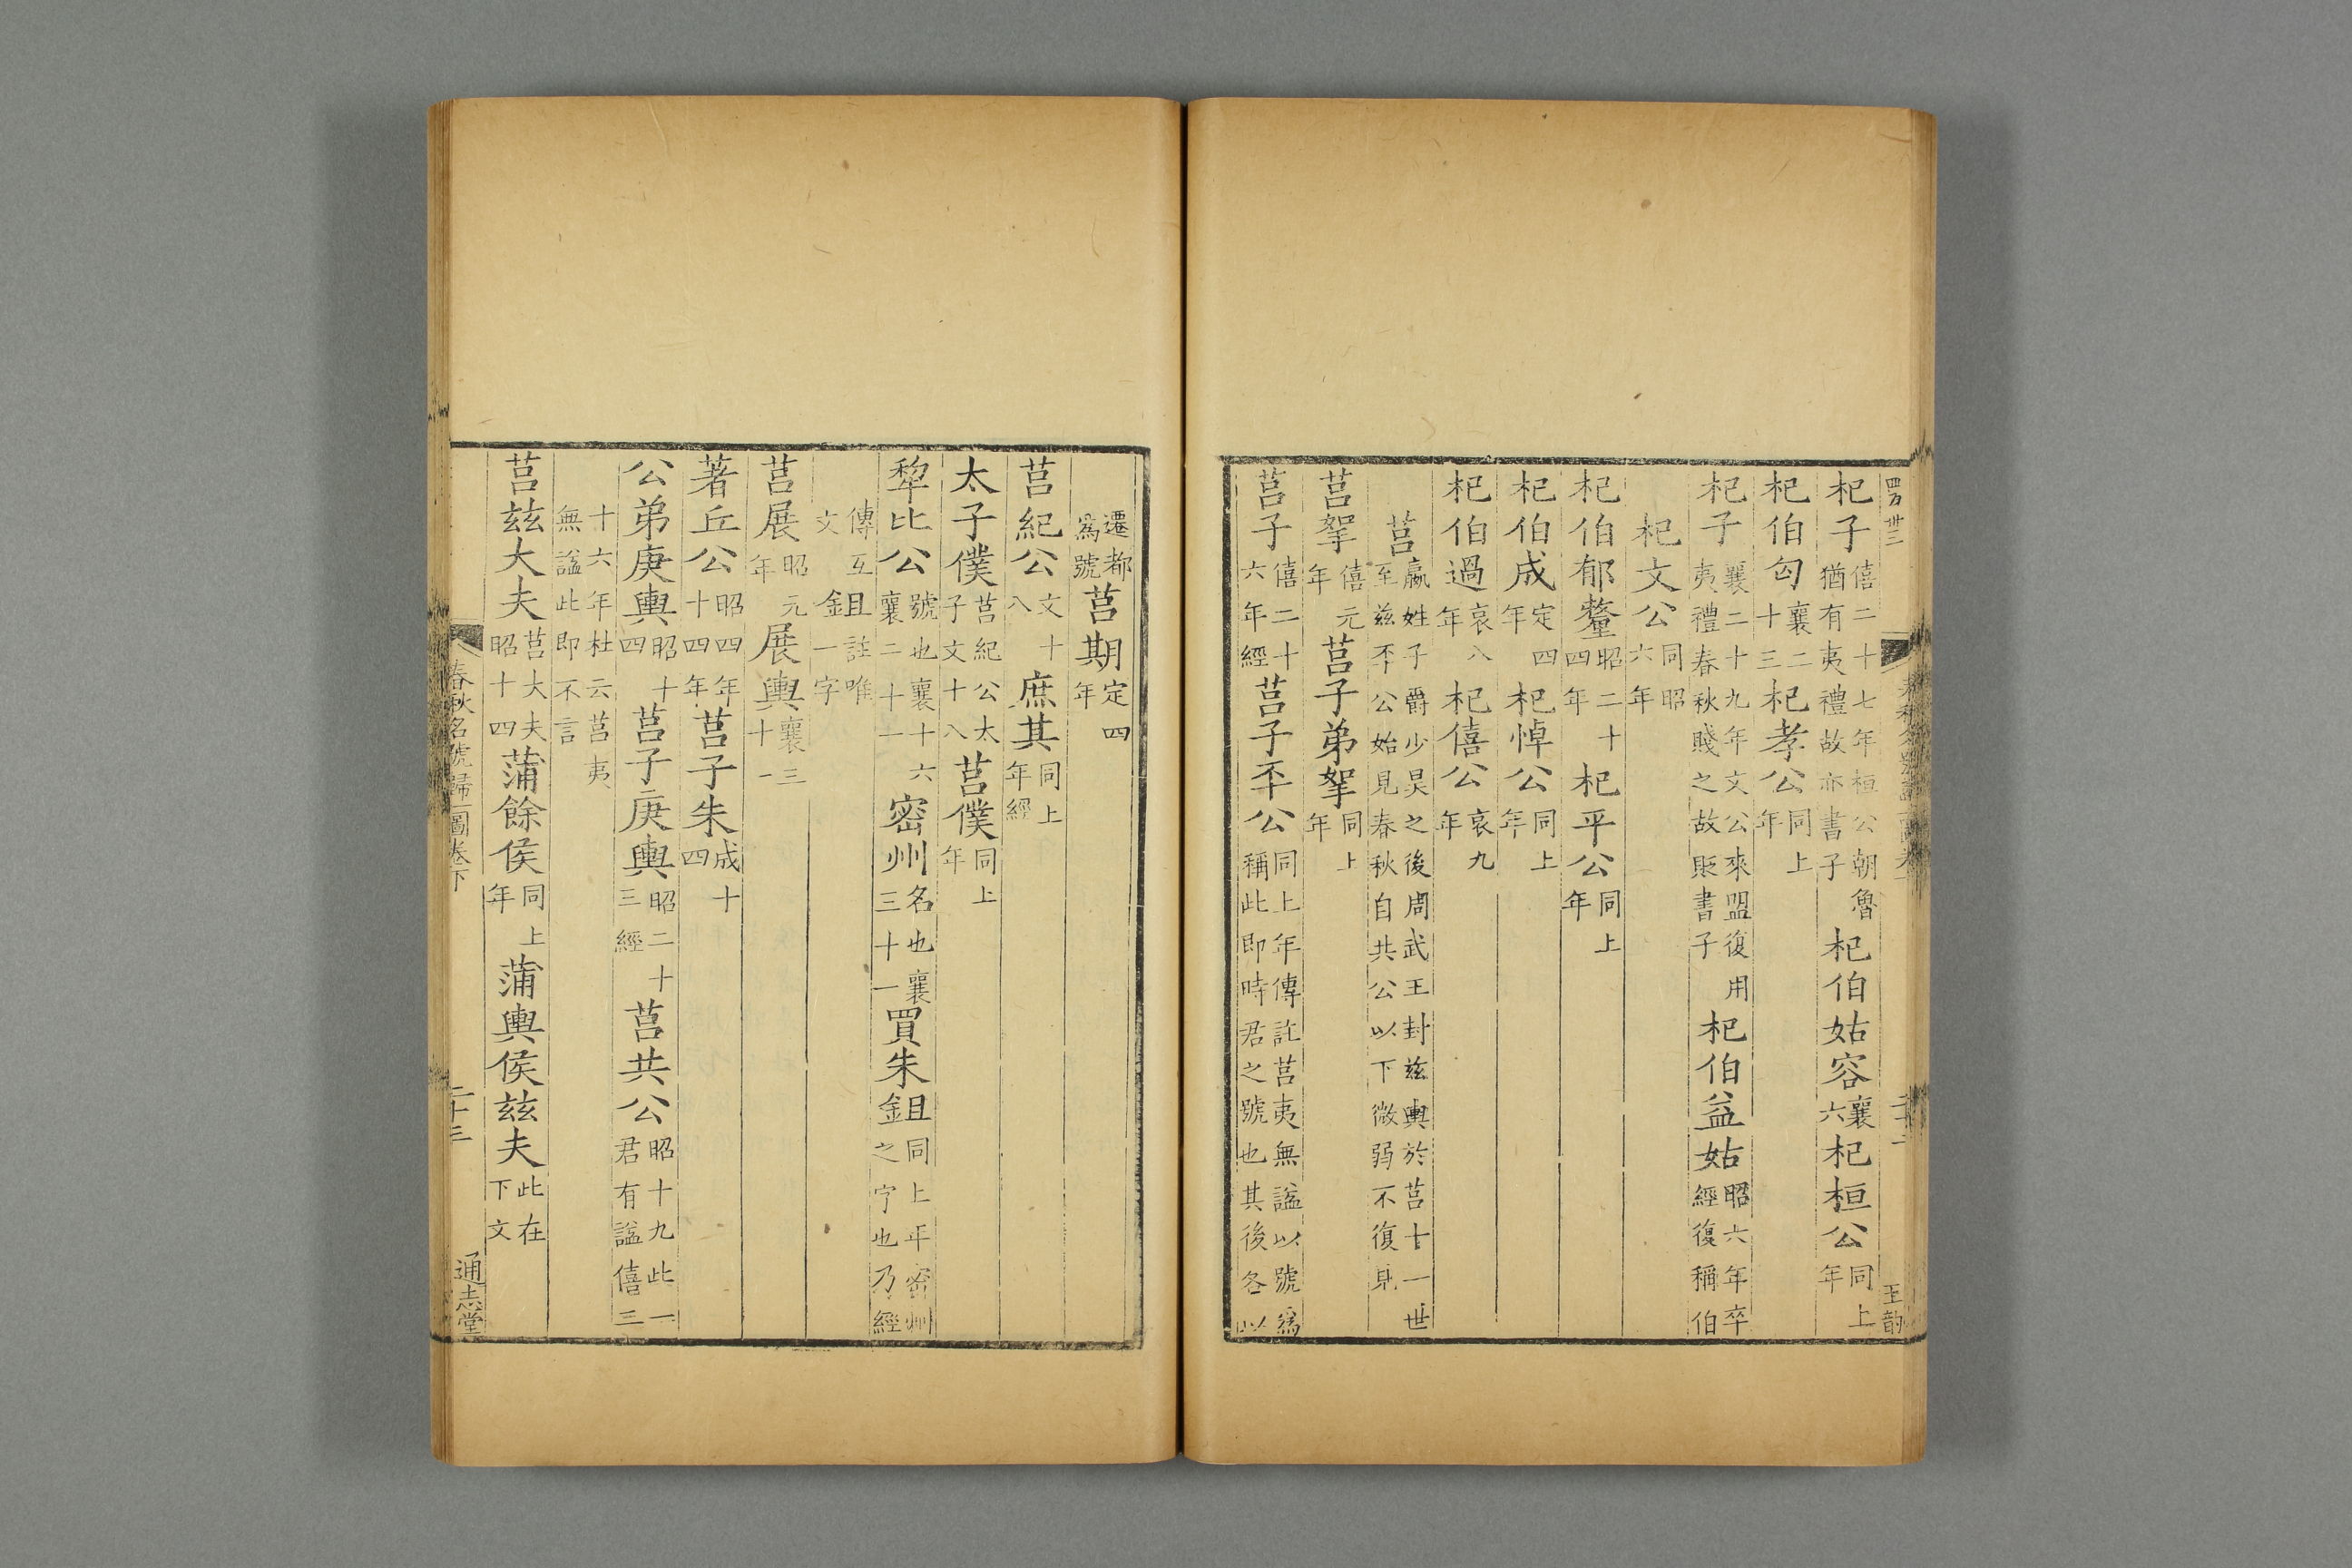 杞子僖二十七年桓公朝魯猶有夷禮故亦書子杞伯姑容襄六杞桓公同上年
杞伯匄襄二十三杞孝公同上年
杞子襄二十九年文公來盟復用夷禮春秋賤之故貶書子杞伯益姑昭六年卒經復稱伯
杞文公同昭六年
杞伯郁釐昭二十四年杞平公同上年
杞伯成定四年杞悼公同上年
杞伯過哀八年杞僖公哀九年
莒嬴姓子爵少昊之後周武王封兹輿於莒十一世至兹㔻公始見春秋自共公以下微弱不復見
莒挐僖元年莒子弟挐同上年
莒子僖二十六年經莒子㔻公同上年傳註莒夷無諡以號爲稱此即時君之號也其後各以
遷都爲號莒期定四年
莒紀公文十八庶其同上年經
太子僕莒紀公太子文十八莒僕同上年
犂比公號也襄十六襄二十一密州名也襄三十一買朱鉏同上年密州之字也乃經
傳互文鉏註唯一字
莒展昭元年展輿襄三十一
著丘公昭四年十四年莒子朱成十四
公弟庚輿昭十四莒子庚輿昭二十三經莒共公昭十九此一君有諡僖三
十六年杜云莒夷無諡此即不言
莒兹大夫莒大夫昭十四蒲餘侯同上年蒲輿侯兹夫此在下文
春秋名號歸一圖卷下
二十三
通志堂